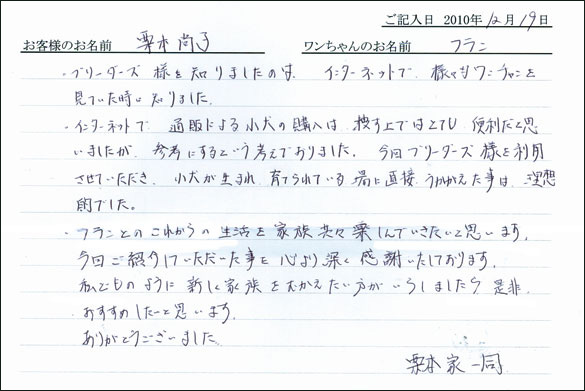 ご記入日 2010年12月19日
お客様のお名前 栗本尚子 ワンちゃんのお名前 フラン
・ブリーダーズ様を知りましたのは、インターネットで、様々なワンチャンを
見ていた時に知りました。
・インターネットで 通販による小犬の購入は、捜す上ではとても便利だと思
いましたが、参考にするという考えでおりました。今回ブリーダーズ様を利用
させていただき、小犬が生まれ、育てられている場に直接うかがえた事は、理想
的でした。
・フランとのこれからの生活を家族共々楽しんでいきたいと思います。
今回ご紹介していただいた事を心より深く感謝いたしております。
私どものように新しく家族をむかえたい方がいらしましたら是非、
おすすめしたいと思います。
ありがとうございました
栗本家一同